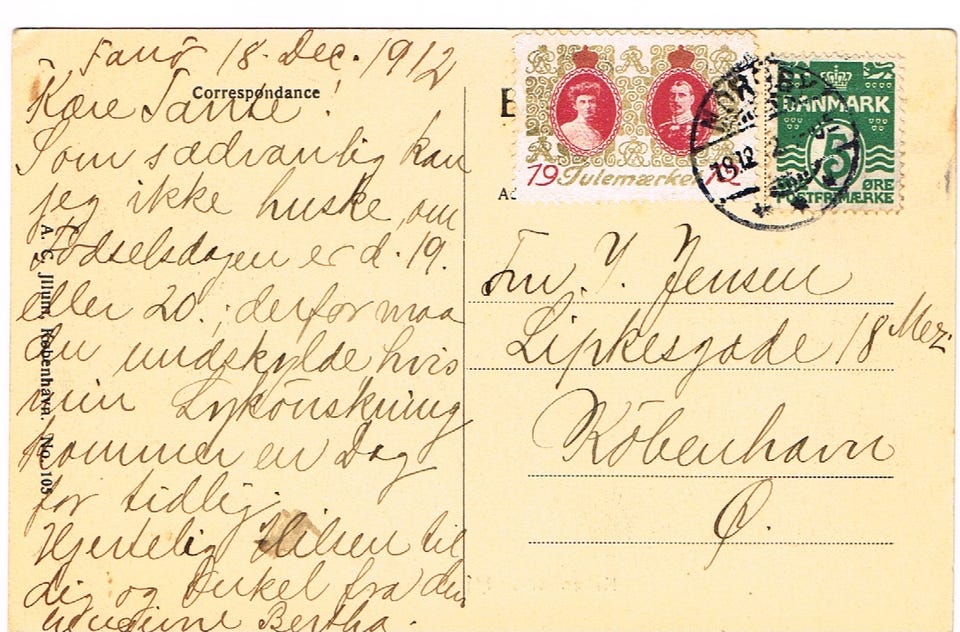 Fanö 18. Dec. 1912
Correspondance
Kære Tante!
Som sædvanlig kan
jeg ikke huske, om
Födselsdagen er d. 19.
eller 20., derfor maa
du undskylde hvis
min Lykönskning
kommer en Dag
for tidlig.
Hjertelig Hilsen til
dig og Onkel fra din
Bertha.
A. C. Illum, København. No. 105
19 Julemærket 12
19.12
DANMARK
5
ØRE
POSTFRIMÆRKE
Fru Y. Jensen
Lipkesgade 18 Mez.
Köbenhavn
Ø.